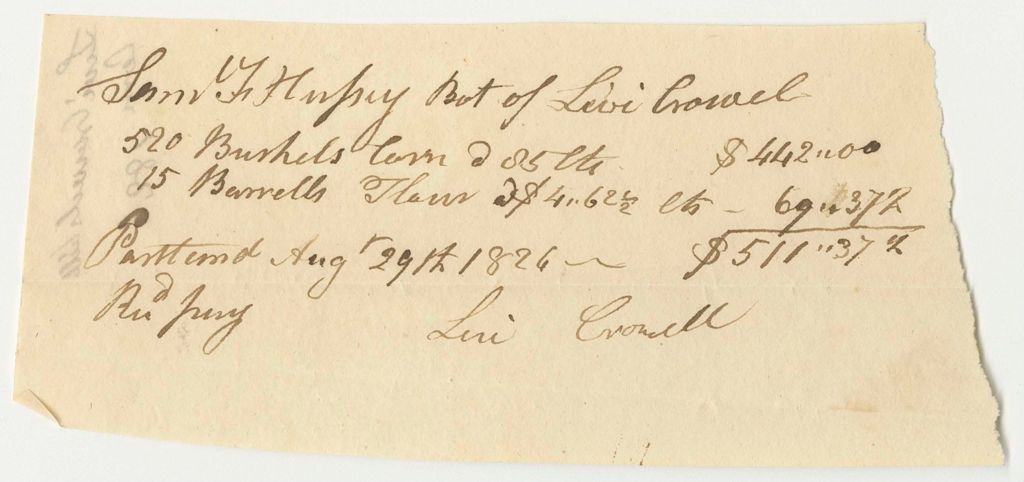 Saml F Hussey Bot of Levi Crowel
520 Bushels Corn @ 85 Cts $442"00
15 Barrells Flour @ $4"62½ Cts – 69"37½
$511"37½
Portland Augt 29th 1826
Recd pay
Levi Crowell